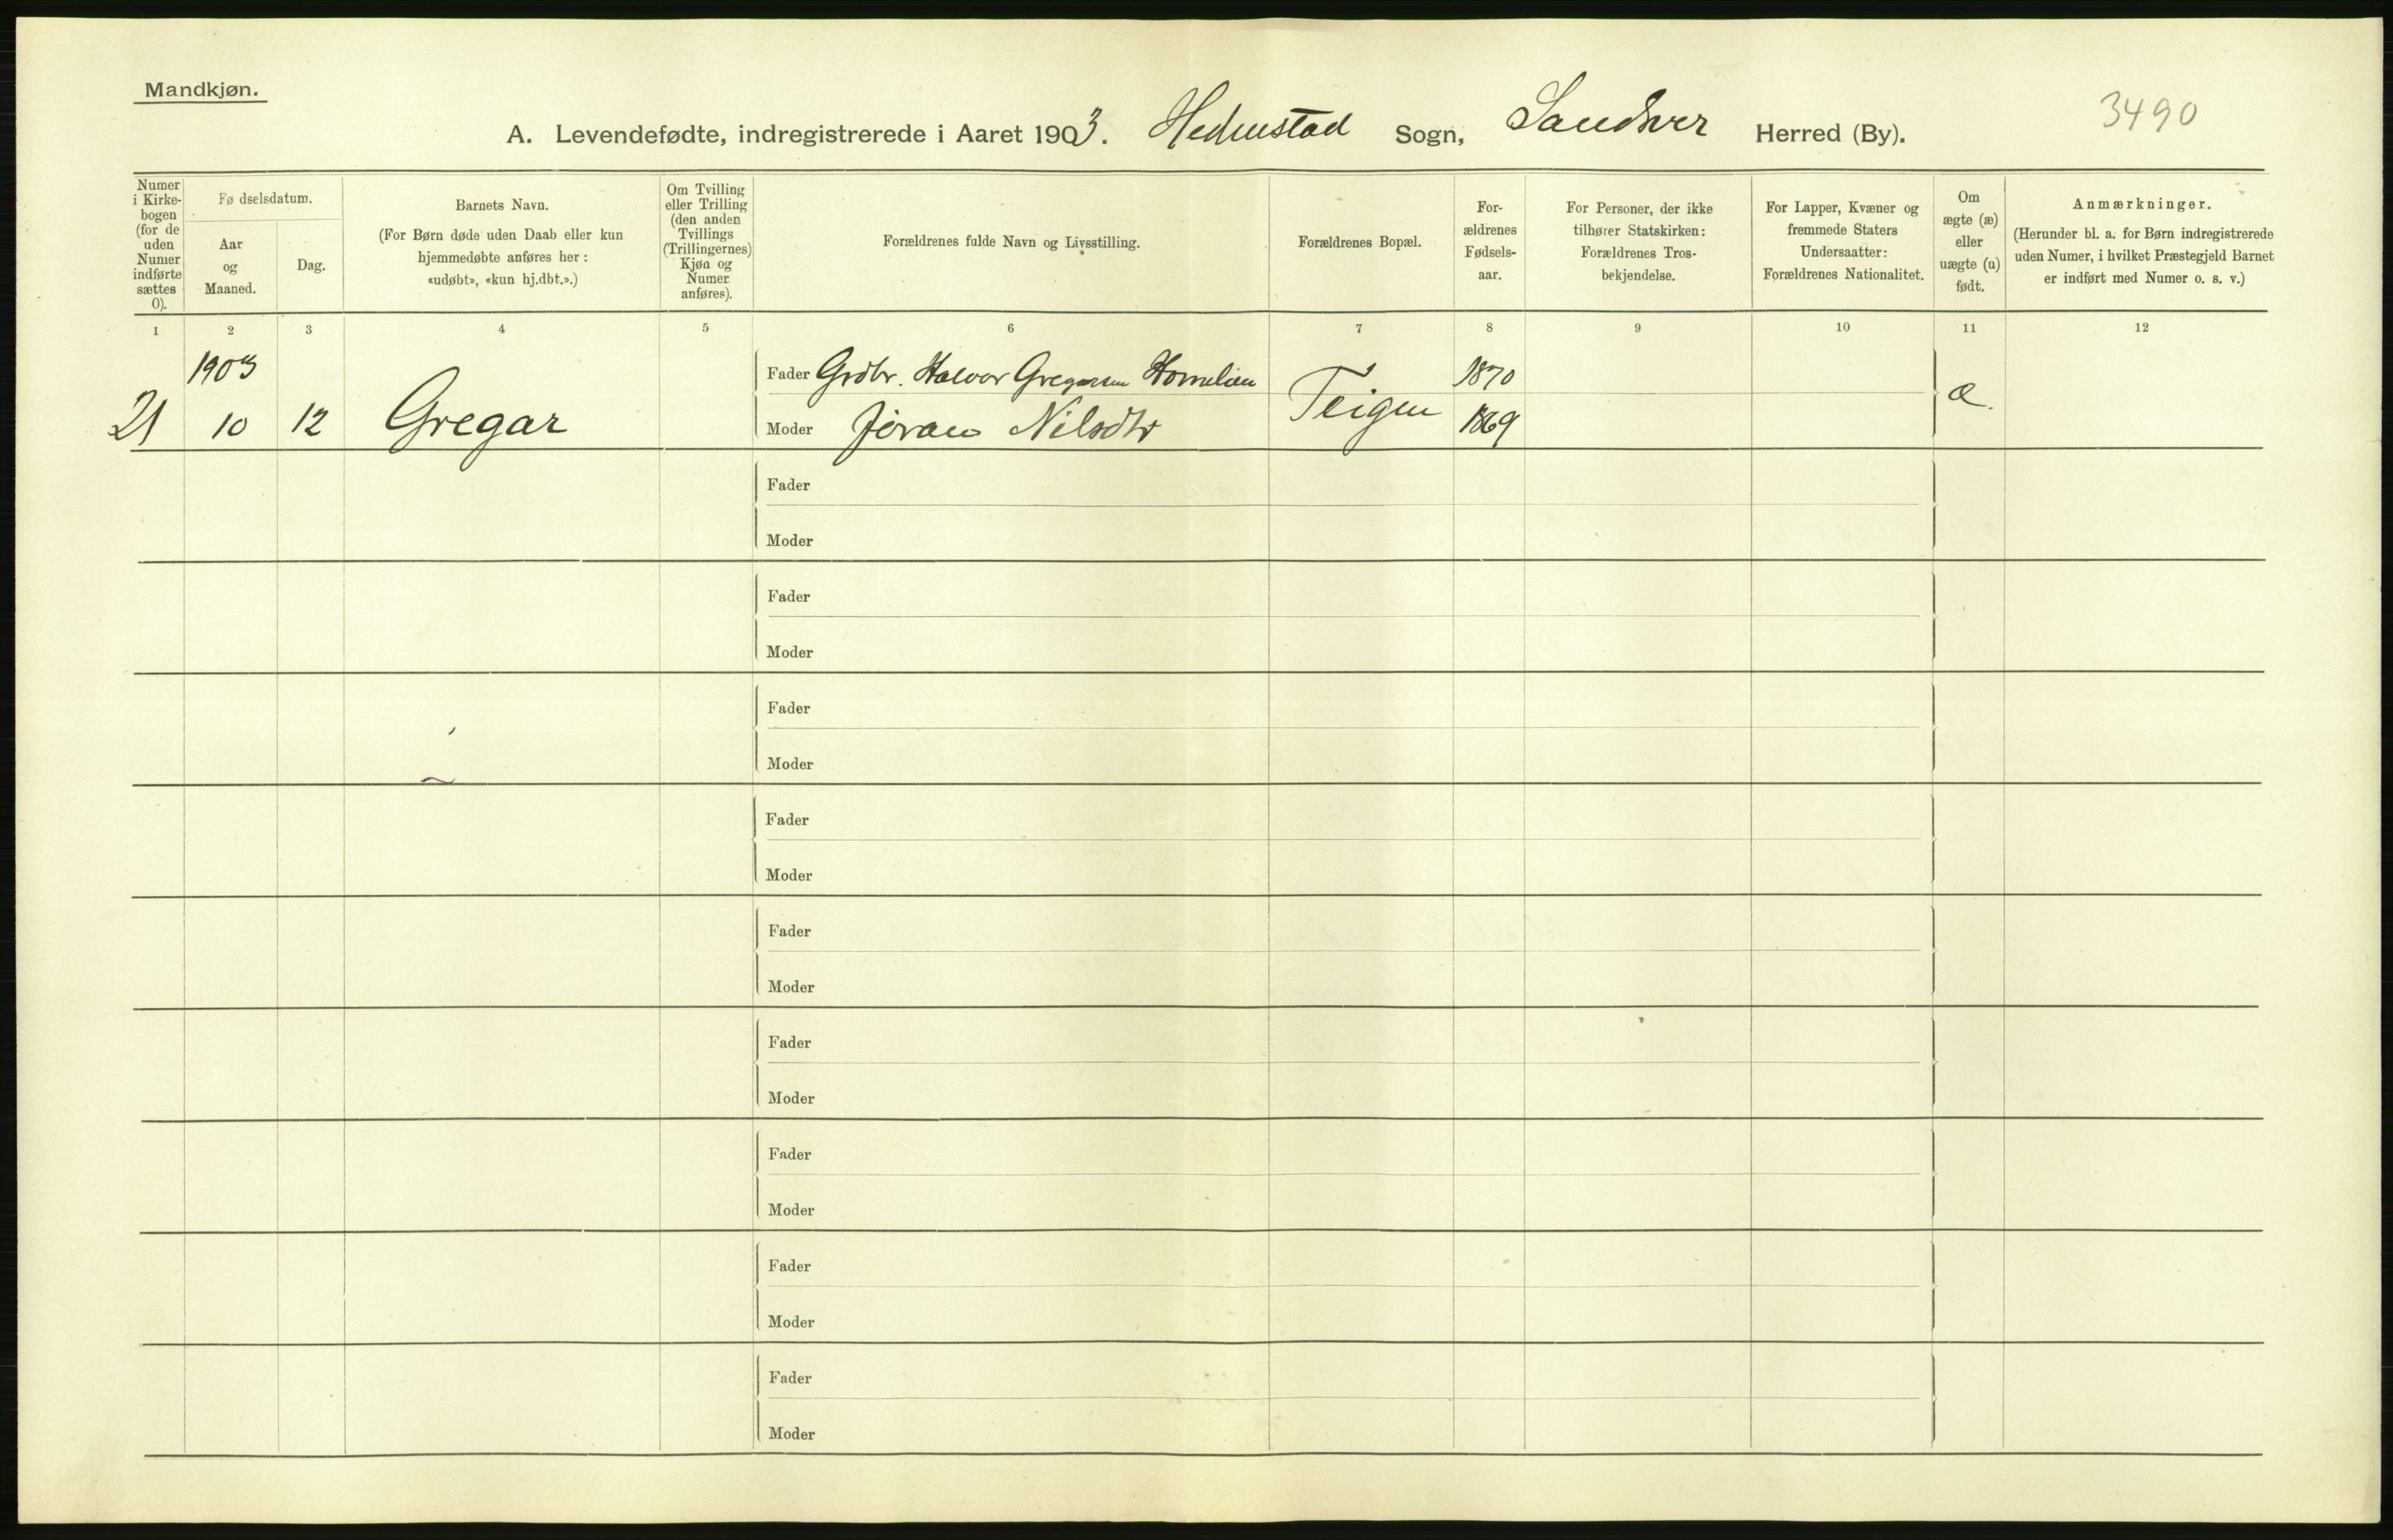 Mandkjøn.
3490
A. Levendefødte, indregistrerede i Aaret 1903. Hedenstad Sogn, Sandsvær Herred (By).
Numer i Kirkebogen (for de uden Numer indførte sættes 0).
Fødselsdatum.
Aar og Maaned.
Dag.
Barnets Navn.
(For Børn døde uden Daab eller kun hjemmedøbte anføres her: «udøbt», «kun hj.dbt.».)
Om Tvilling eller Trilling (den anden Tvillings (Trillingernes) Kjøn og Numer anføres).
Forældrenes fulde Navn og Livsstilling.
Forældrenes Bopæl.
Forældrenes Fødselsaar.
For Personer, der ikke tilhører Statskirken: Forældrenes Trosbekjendelse.
For Lapper, Kvæner og fremmede Staters Undersaatter: Forældrenes Nationalitet.
Om ægte (æ) eller uægte (u) født.
Anmærkninger.
(Herunder bl. a. for Børn indregistrerede uden Numer, i hvilket Præstegjeld Barnet er indført med Numer o. s. v.)
1 2 3 4 5 6 7 8 9 10 11 12
1903 Fader Grdbr. Halvor Gregersen 1870
21 10 12 Gregar Moder Jøran Nilsdtr Teigen 1869 æ.
Fader
Moder
Fader
Moder
Fader
Moder
Fader
Moder
Fader
Moder
Fader
Moder
Fader
Moder
Fader
Moder
Fader
Moder